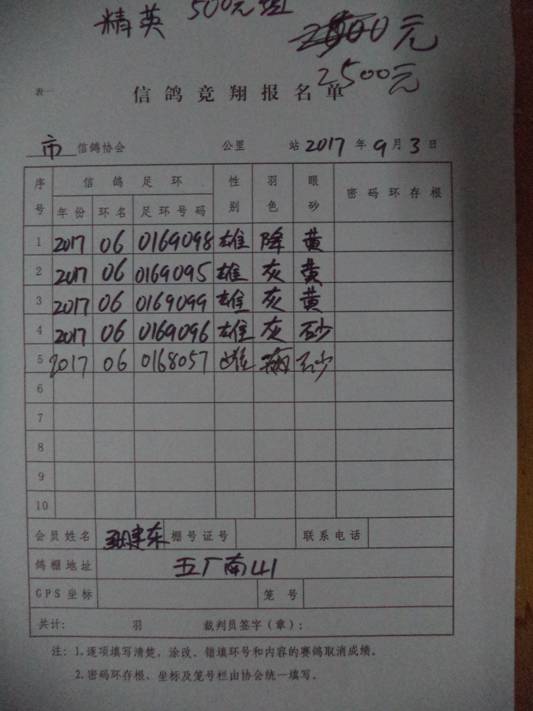 精英 500元组
2500元
表一 信鸽竞翔报名单
市 信鸽协会 公里 站 2017 年 9 月 3 日
序号 信鸽足环 性别 羽色 眼砂 密码环存根
年份 环名 足环号码
1 2017 06 0169098 雄 降 黄
2 2017 06 0169095 雄 灰 黄
3 2017 06 0169099 雄 灰 黄
4 2017 06 0169096 雄 灰 砂
5 2017 06 0168057 雌 砂
6
7
8
9
10
会员姓名 建东 棚号证号 联系电话
鸽棚地址 五厂南山
GPS坐标 笼号
共计: 羽 裁判员签字(章):
注: 1.逐项填写清楚, 涂改、错填环号和内容的赛鸽取消成绩。
2.密码环存根、坐标及笼号栏由协会统一填写。